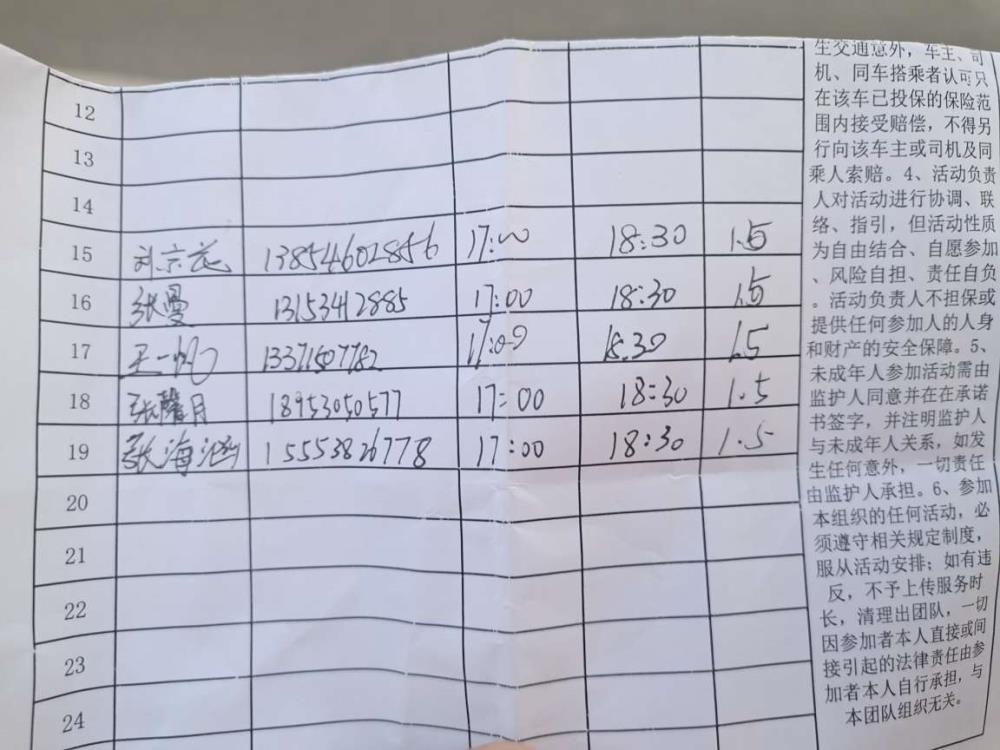 12
13
14
15 刘宗花 13854602856 17:00 18:30 1.5
16 张曼 13153412885 17:00 18:30 1.5
17 王一帆 13371507782 17:00 18:30 1.5
18 张馨月 18953050577 17:00 18:30 1.5
19 张海涵 15553826778 17:00 18:30 1.5
20
21
22
23
24
生交通意外，车主、司
机、同车搭乘者认可只
在该车已投保的保险范
围内接受赔偿，不得另
行向该车主或司机及同
乘人索赔。4、活动负责
人对活动进行协调、联
络、指引，但活动性质
为自由结合、自愿参加
、风险自担、责任自负
。活动负责人不担保或
提供任何参加人的人身
和财产的安全保障。5、
未成年人参加活动需由
监护人同意并在在承诺
书签字，并注明监护人
与未成年人关系，如发
生任何意外，一切责任
由监护人承担。6、参加
本组织的任何活动，必
须遵守相关规定制度，
服从活动安排；如有违
反，不予上传服务时
长，清理出团队，一切
因参加者本人直接或间
接引起的法律责任由参
加者本人自行承担，与
本团队组织无关。